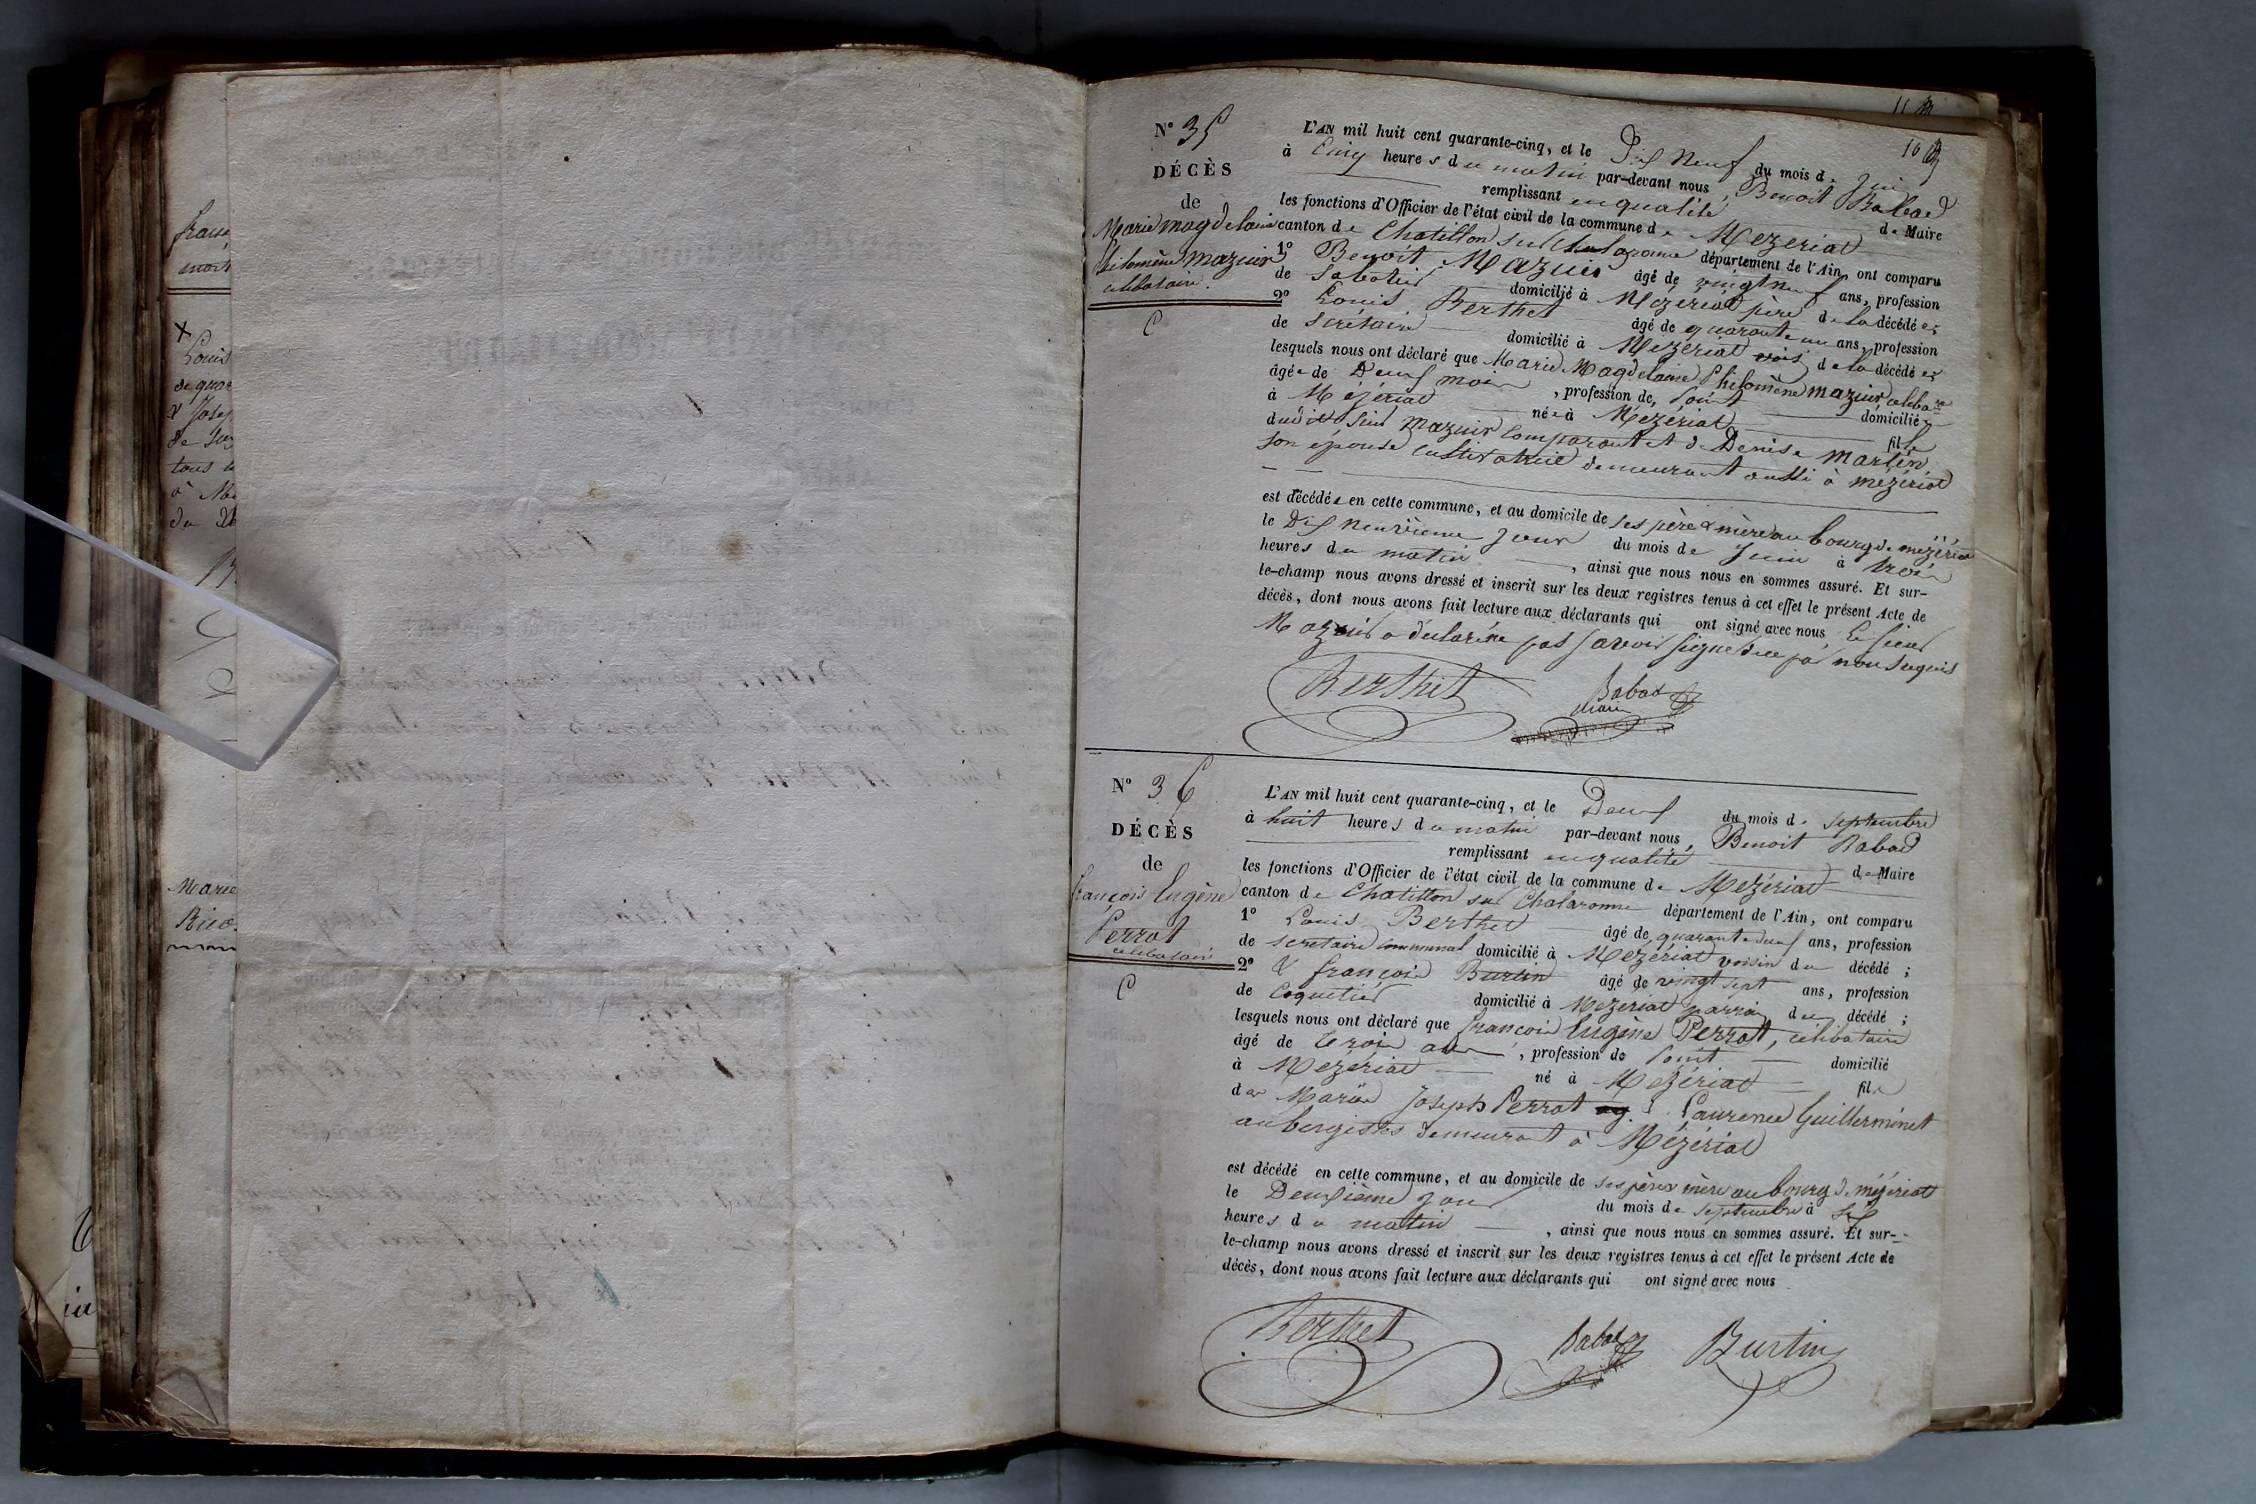 N° 35
DÉCÈS
de
Marie magdelaine
philomène mazuir
celibataire.
C
L'AN mil huit cent quarante-cinq, et le Dix Neuf du mois de Juin
à Cinq heures du matin par-devant nous, Benoit Rabad
remplissant en qualité de Maire
les fonctions d'Officier de l'état civil de la commune de Mezeriat
canton de Chatillon sur Chalaronne département de l'Ain, ont comparu
1° Benoit Mazuir âgé de vingt neuf ans, profession
de sabotier domicilié à Mézériat père de la décédée;
2° Louis Berthet âgé de quarante un ans, profession
de secrétaire domicilié à Mezériat voisin de la décédée;
lesquels nous ont déclaré que Marie Magdelaine Philomène mazuir, celibare
âgée de Deux mois, profession de, point domiciliée
à Mézériat née à Mézériat fille
dudit Sieur Mazuir comparant et de Denise Martin,
son épouse cultivatrice demeurant aussi à mezériat
est décédée en cette commune, et au domicile de ses père & mère au bourg de mézériat
le Dix neuvième jour du mois de Juin à trois
heures du matin, ainsi que nous nous en sommes assuré. Et sur-
le-champ nous avons dressé et inscrit sur les deux registres tenus à cet effet le présent Acte de
décès, dont nous avons fait lecture aux déclarants qui ont signé avec nous Le sieur
Mazuir a déclaré ne pas savoir signer de ce par nous requis
Berthet
Rabad
maire
N° 36
DÉCÈS
de
françois Eugène
Perrot
celibataire
C
L'AN mil huit cent quarante-cinq, et le Deux du mois de septembre
à huit heures du matin par-devant nous, Benoit Rabad
remplissant en qualité de Maire
les fonctions d'Officier de l'état civil de la commune de Mezériat
canton de Chatillon sur Chalaronne département de l'Ain, ont comparu
1° Louis Berthet âgé de quarante deux ans, profession
de secretaire communal domicilié à Mezériat voisin du décédé;
2° & françois Burtin âgé de vingt sept ans, profession
de Coquetier domicilié à Mezériat parrain du décédé;
lesquels nous ont déclaré que françois Eugène Perrot, célibataire
âgé de trois ans, profession de point domicilié
à Mezériat né à Mezériat fils
de Joseph Perrot Laurence Guillerminet
aubergistes demeurant à Mézériat
est décédé en cette commune, et au domicile de ses père & mère au bourg de mézériat
le Deuxième jour du mois de septembre à six
heures du matin, ainsi que nous nous en sommes assuré. Et sur-
le-champ nous avons dressé et inscrit sur les deux registres tenus à cet effet le présent Acte de
décès, dont nous avons fait lecture aux déclarants qui ont signé avec nous
Berthet
Rabad
Burtin